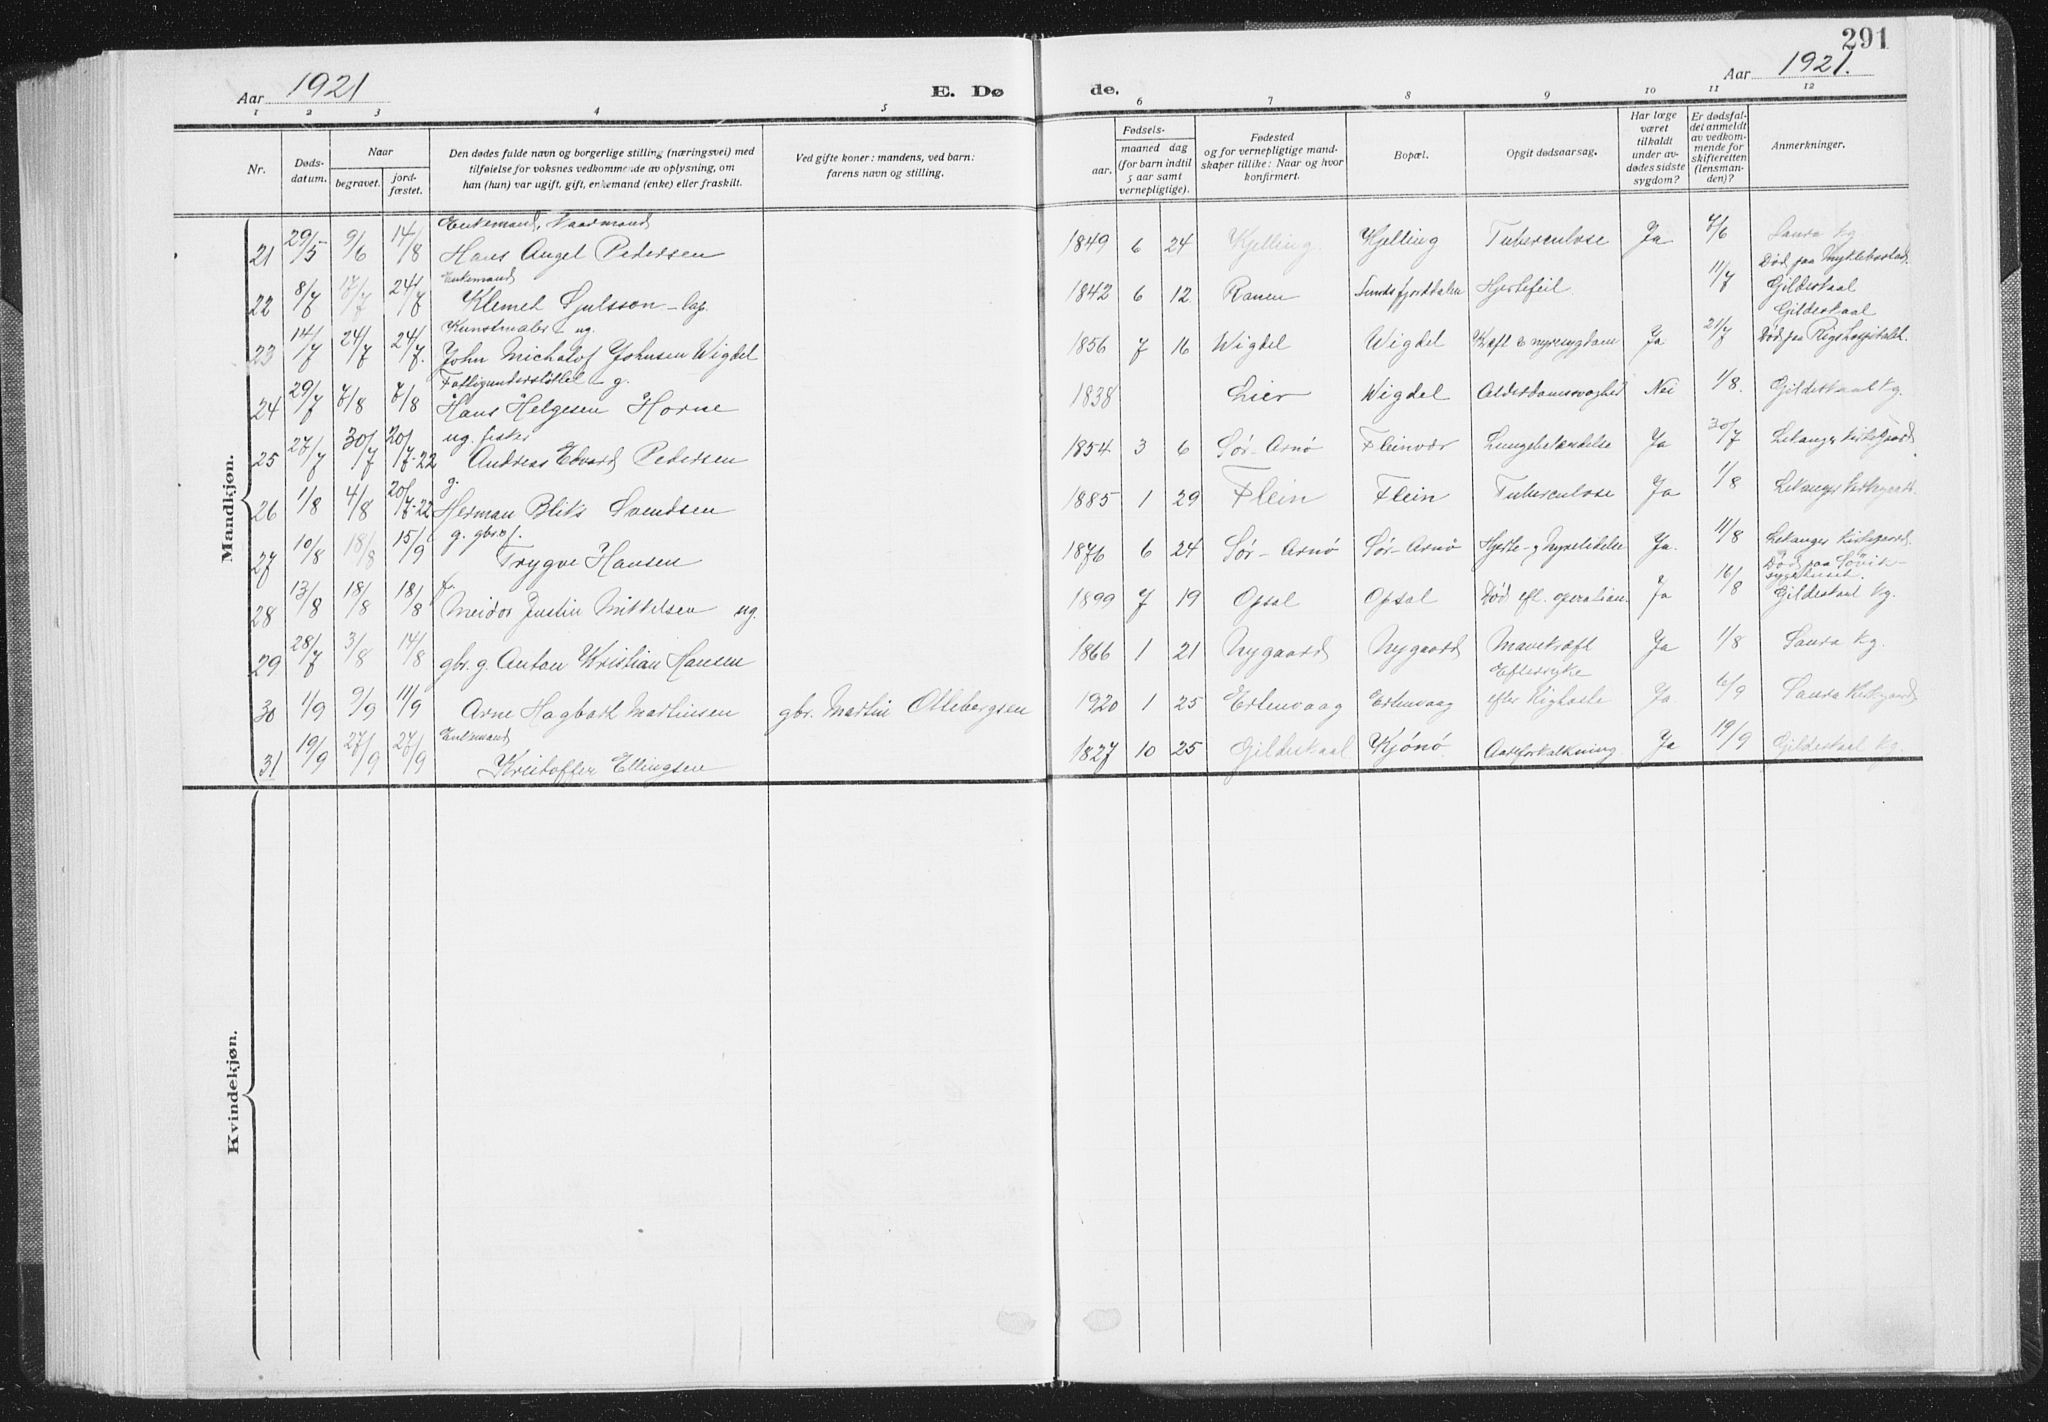 291
Aar 1921
E. Døde.
Aar 1921.
1 2 3 4 5 6 7 8 9 10 11 12
Nr.
Døds-
datum.
Naar
begravet.
jord-
fæstet.
Den dødes fulde navn og borgerlige stilling (næringsvei) med
tilføielse for voksnes vedkommende av oplysning, om
han (hun) var ugift, gift, enkemand (enke) eller fraskilt.
Ved gifte koner: mandens, ved barn:
farens navn og stilling.
Fødsels-
aar.
maaned dag
(for barn indtil
5 aar samt
vernepligtige).
Fødested
og for vernepligtige mand-
skaper tillike: Naar og hvor
konfirmert.
Bopæl.
Opgit dødsaarsag.
Har læge
været
tilkaldt
under av-
dødes sidste
sygdom?
Er dødsfal-
det anmeldt
av vedkom-
mende for
skifteretten
(lensman-
den)?
Anmerkninger.
Mandkjøn.
Enkemand,
21 29/5 9/6 14/8 Hans Angel Pedersen 1849 6 24 Kjelling Kjelling Tuberculose Ja 7/6 Saura kg.
Enkemand Død paa Myklebostad
22 8/7 17/7 24/7 Klemet Sjulsson - lap. 1842 6 12 Ranen Sundsfjorddalen Hjertefeil 11/7 Gildeskaal
Kunstmaler - ug. Gildeskaal
23 14/7 24/7 24/7. John Michalof Johnsen Wigdel 1856 7 16 Wigdel Wigdel Kræft & nyresygdom Ja 21/7 Død paa Rigshospitalet.
Fattigunderstøttet - g.
24 29/7 7/8 7/8 Hans Helgesen Horne 1838 Lier Wigdel Alderdomssvaghet Nei 1/8. Gildeskaal kg.
ug. fisker
25 27/7 30/7 20/7-22 Andreas Edvard Pedersen 1854 3 6 Sør-Arnø Fleinvær Lungebetændelse Ja 30/7 Lekanger kirkegaard
g.
26 1/8 4/8 20/7-22 Herman Blik's Svendsen 1885 1 29 Flein Flein Tuberculose Ja 1/8 Lekanger kirkegaard.
g. gbr. of.
27 10/8 18/8 15/9 Trygve Hansen 1876 6 24 Sør-Arnø Sør-Arnø Hjerte- og Nyrelidelse Ja. 11/8 Lekanger kirkegaard.
f. Død paa Søvik
sygehuset.
28 13/8 18/8 18/8 Meidor Justin Mikkelsen ug. 1899 7 19 Opsal Opsal Død eft. operation. Ja 16/8 Gildeskaal kg.
29 28/7 3/8 14/8 gbr. g. Anton Kristian Hansen 1866 1 21 Nygaard Nygaard Mavekræft Ja 1/8 Saura kg.
30 1/9 9/9 11/9 Arne Hagbart Martinsen gbr. Martin Ottebergsen 1920 1 25 Ertenvaag Ertenvaag Eftersyke
efter Kighoste Ja 6/9 Saura Kirkegaard
Enkemand
31 19/9 27/9 27/9 Kristoffer Ellingsen 1827 10 25 Gildeskaal Kjønø Aareforkalkning Ja 19/9 Gildeskaal kg.
Kvindekjøn.